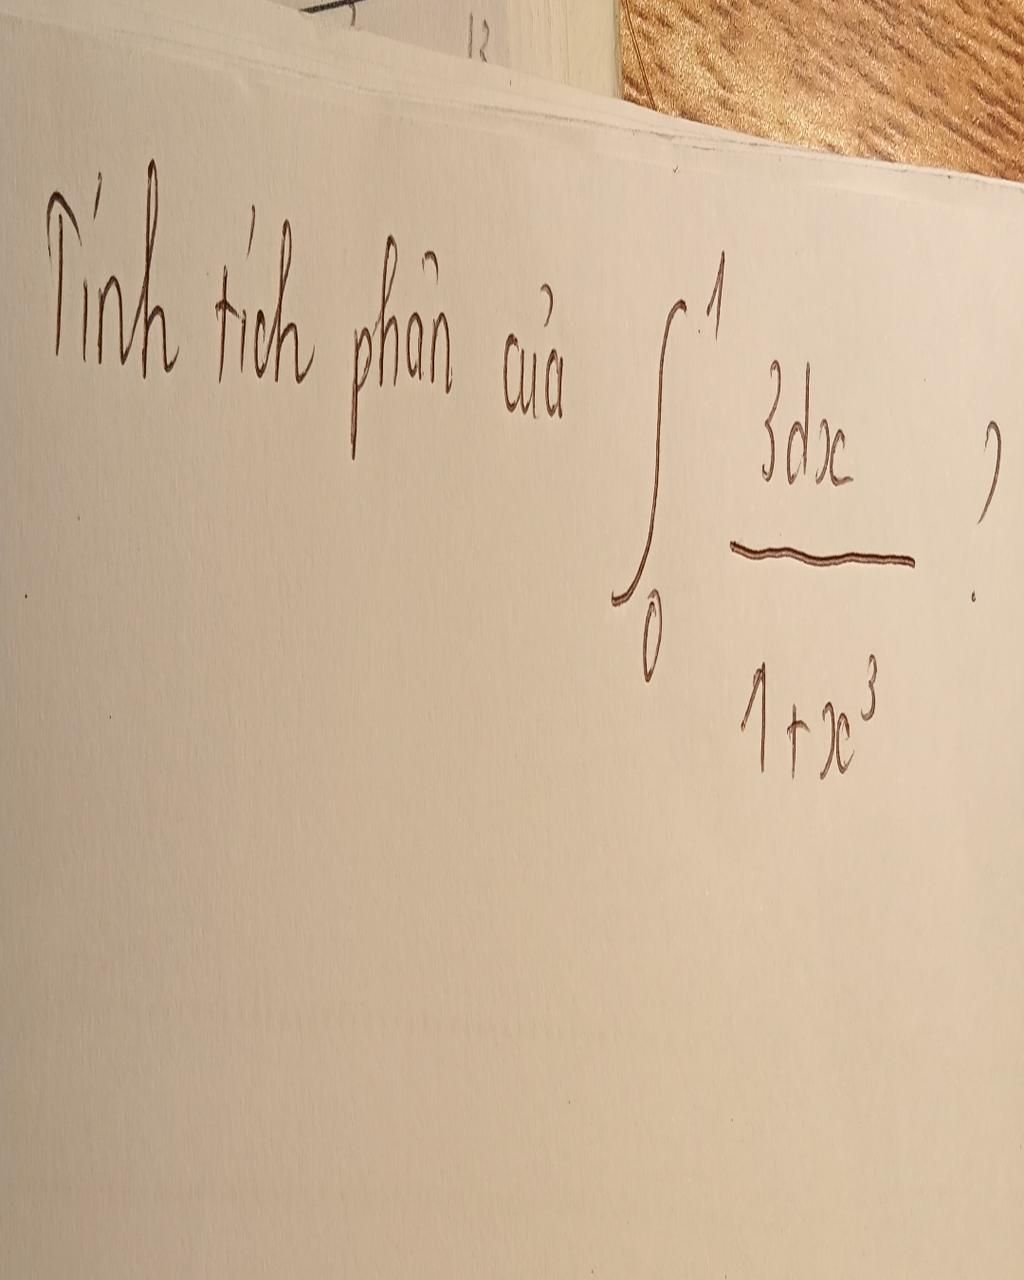 12
Tính tích phân của ∫₀¹ 3dx / 1+x³ ?